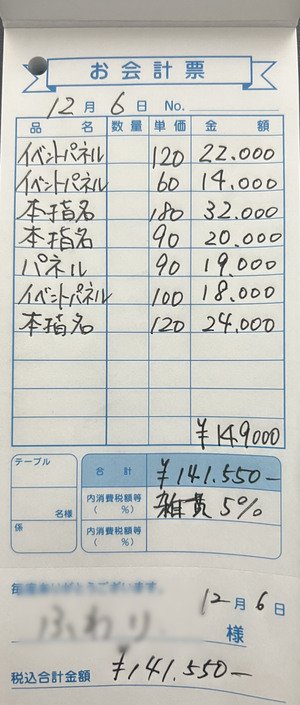 お会計票
12月 6日 No.
品名 数量 単価 金額
イベントパネル 120 22.000
イベントパネル 60 14.000
本指名 180 32.000
本指名 90 20.000
パネル 90 19.000
イベントパネル 100 18.000
本指名 120 24.000
¥149000
テーブル 合計 ¥141.550-
名様 内消費税額等( %) 雑費 5%
係 内消費税額等( %)
毎度ありがとうございます。
12月 6日
様
税込合計金額 ¥141.550-